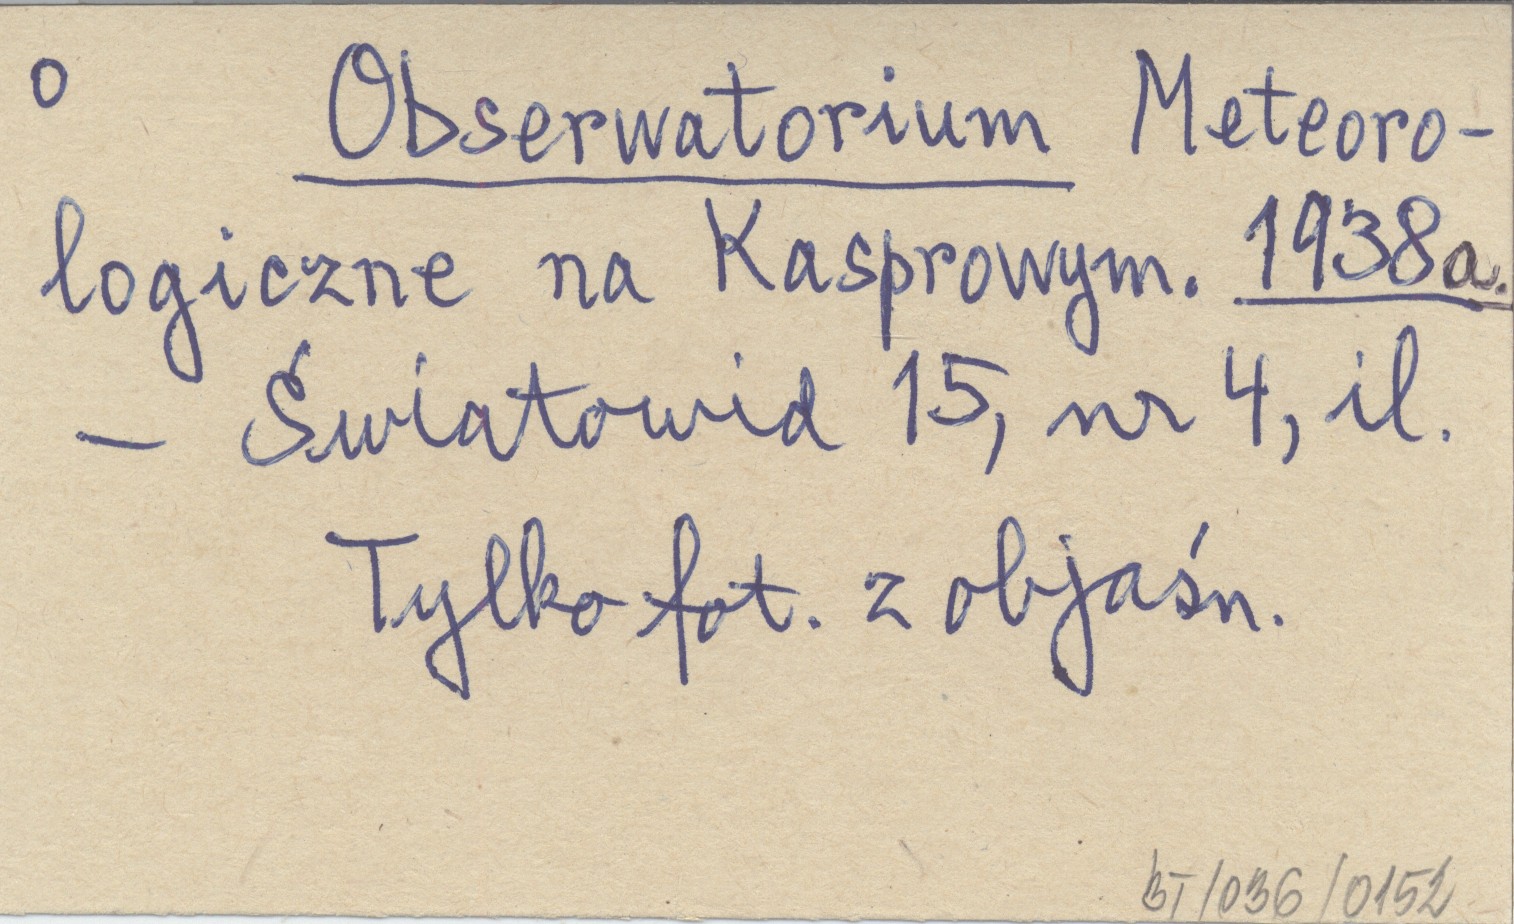 o Obserwatorium Meteoro-
logiczne na Kasprowym. 1938a.
— Światowid 15, nr 4, il.
Tylko fot. z objaśn.
BT/036/0152